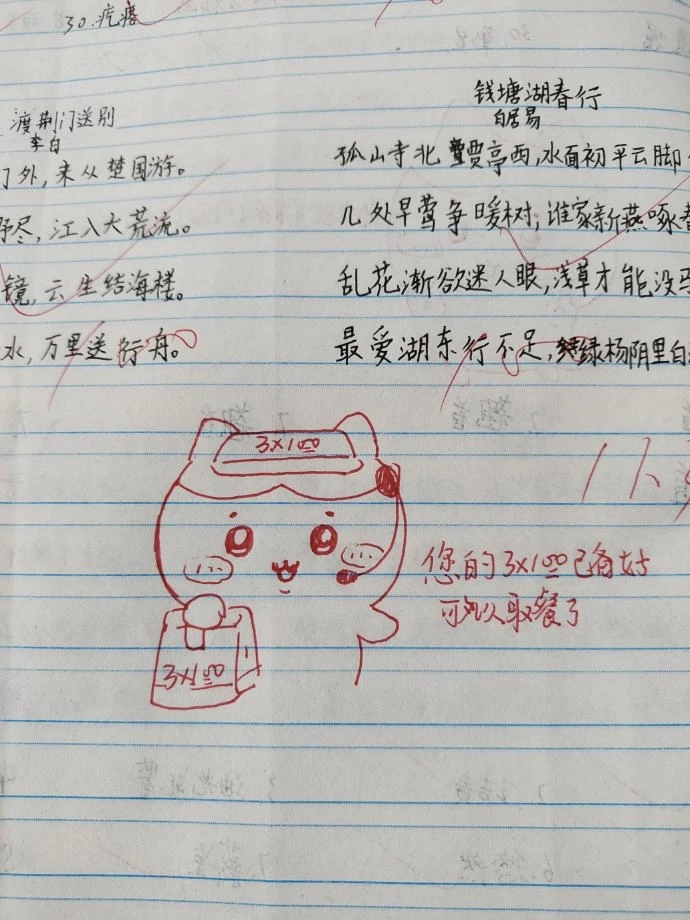 30.疙瘩
渡荆门送别
李白
门外，来从楚国游。
野尽，江入大荒流。
镜，云生结海楼。
水，万里送行舟。
钱塘湖春行
白居易
孤山寺北贾亭西，水面初平云脚
几处早莺争暖树，谁家新燕啄春
乱花渐欲迷人眼，浅草才能没马
最爱湖东行不足，绿杨阴里白
100
100
3×100
您的3×100已备好
可以取餐了
3×100